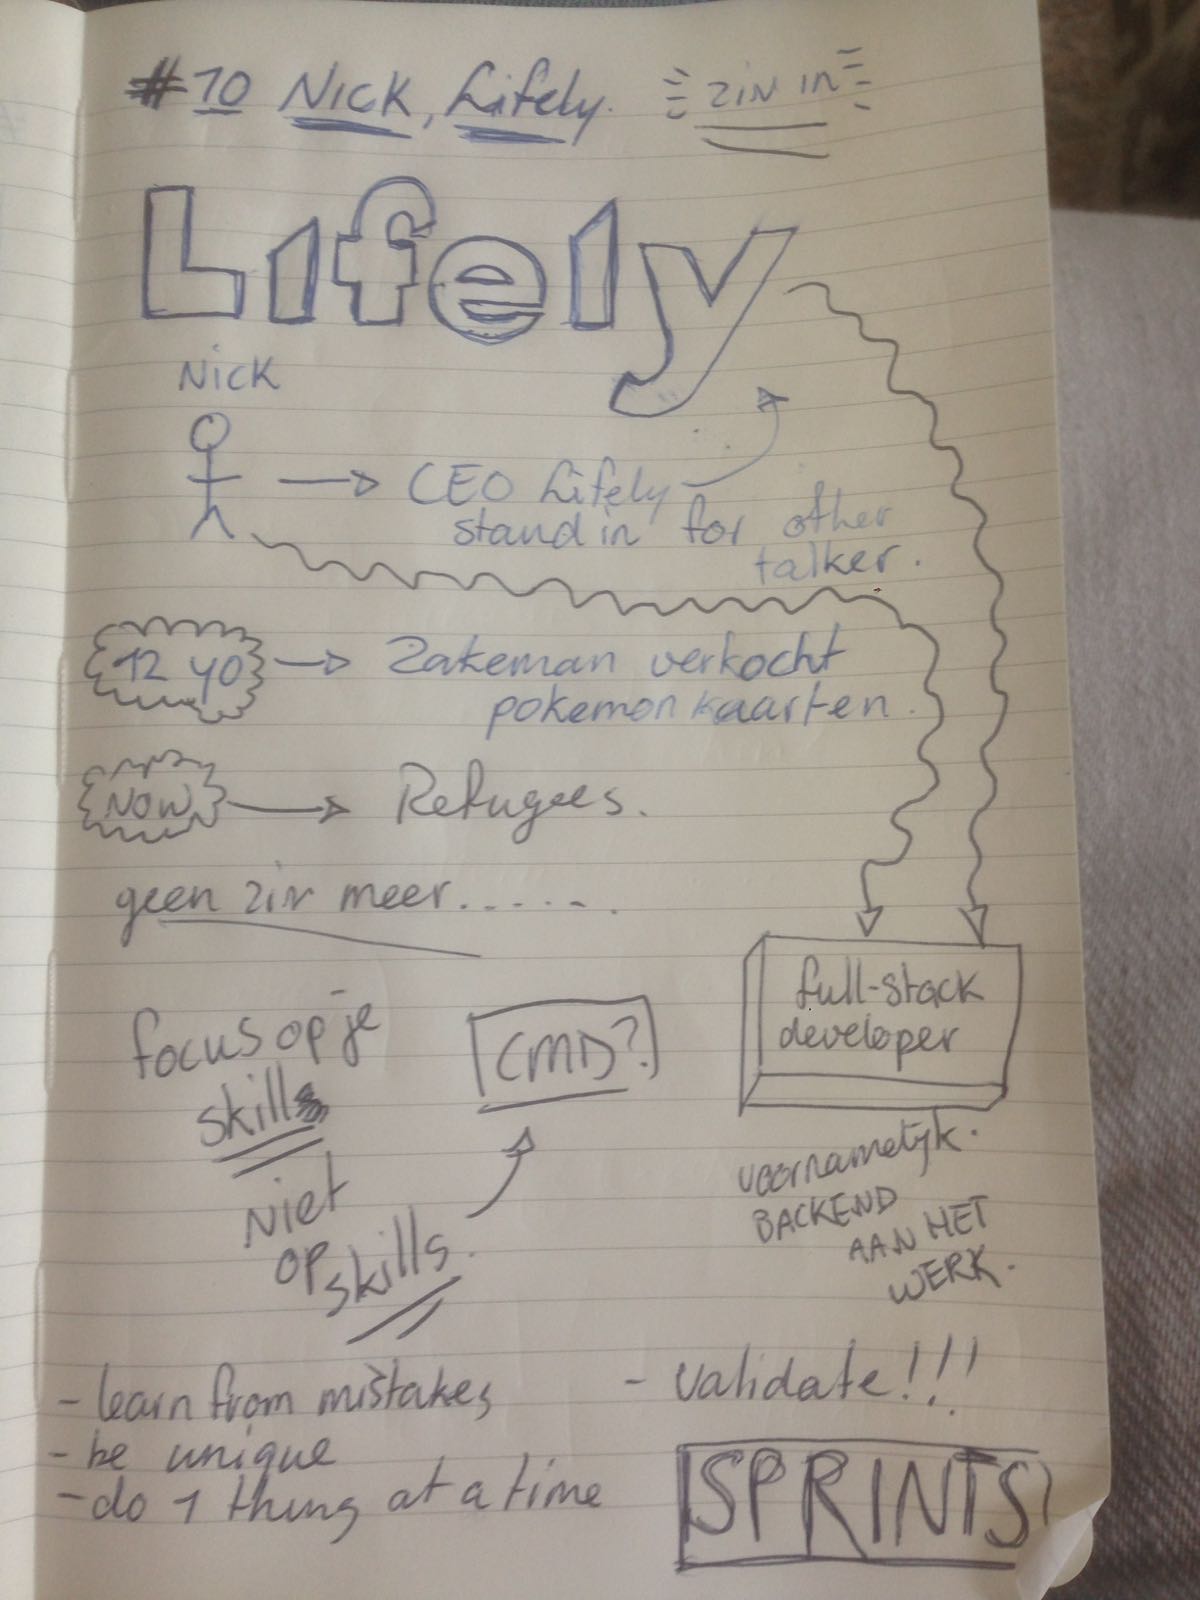 #10 Nick, Lifely. ZIN IN
Lifely
Nick
CEO Lifely
stand in for other
talker.
12 yo
Zakeman verkocht
pokemon kaarten.
NOW
Refugees.
geen zin meer......
focus op je
skills
CMD?
full-stack
developer
NIET
op skills.
voornamelijk.
BACKEND
AAN HET
WERK.
- learn from mistakes
- be unique
- do 1 thing at a time
- validate!!!
SPRINTS